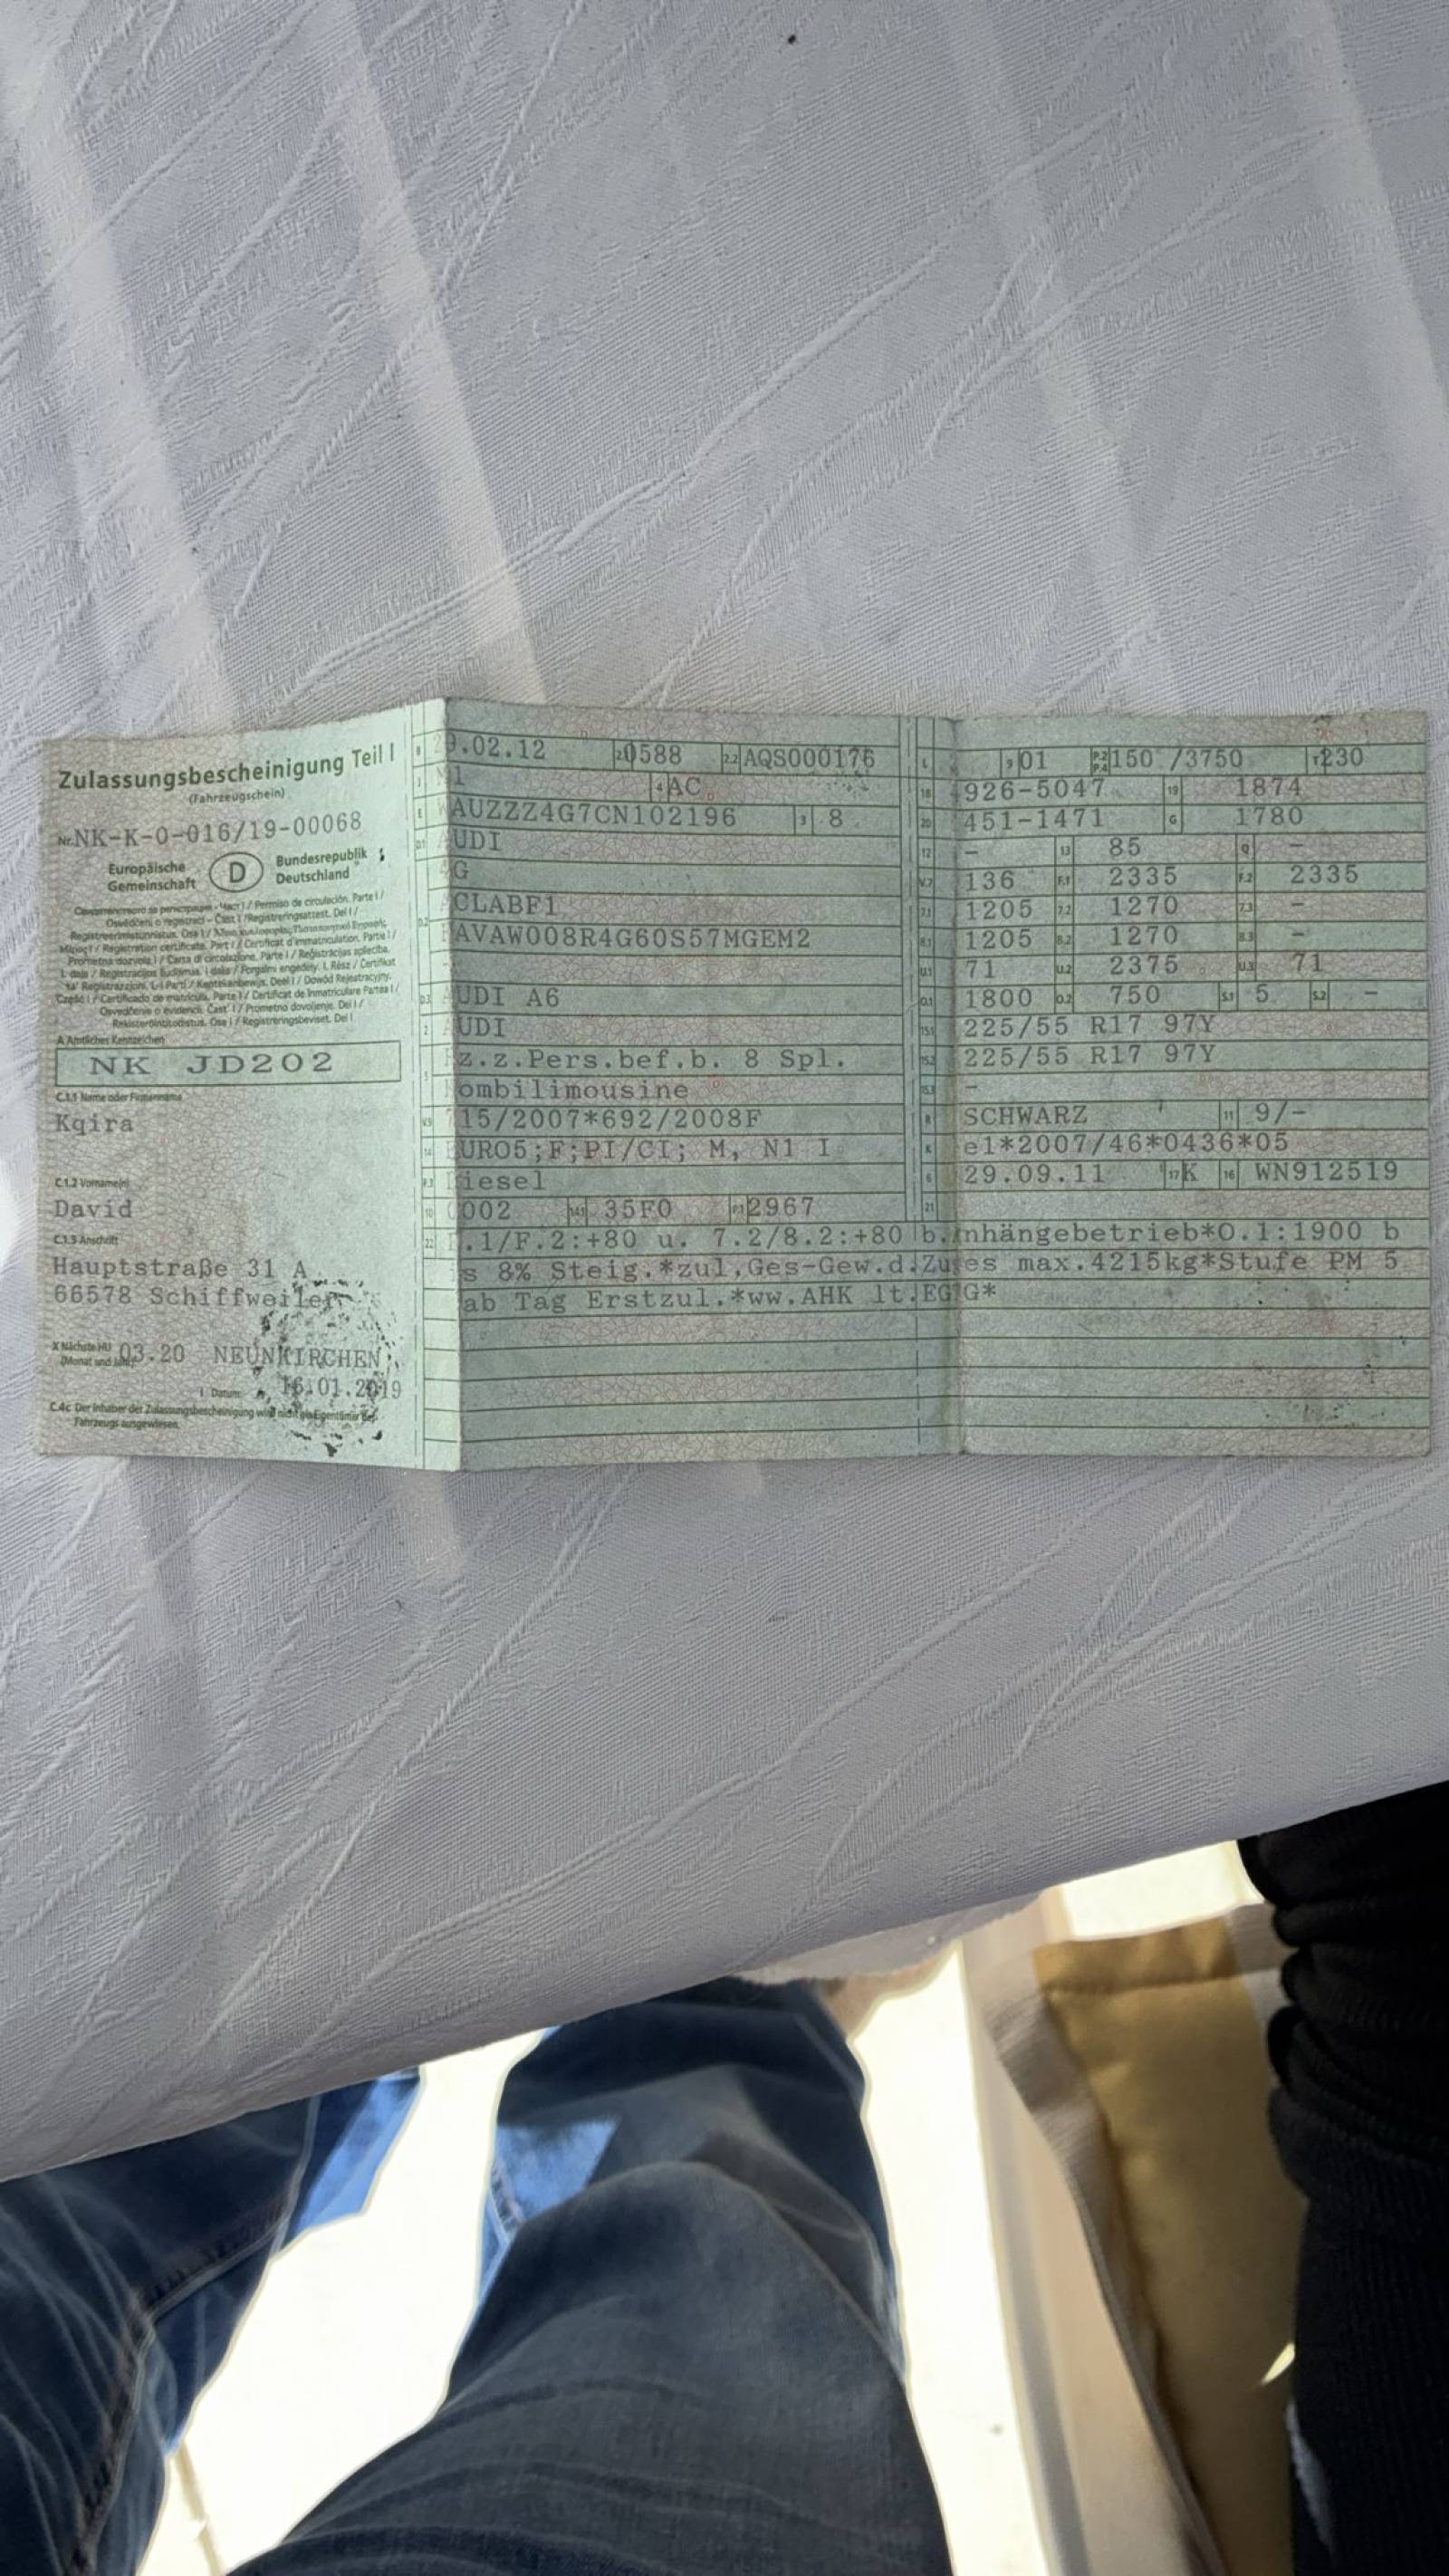 Zulassungsbescheinigung Teil I
(Fahrzeugschein)
Nr. NK-K-0-016/19-00068
Europäische Gemeinschaft
D
Bundesrepublik Deutschland
A Amtliches Kennzeichen
NK JD202
C.1.1 Name oder Firmenname
Kqira
C.1.2 Vorname(n)
David
C.1.3 Anschrift
Hauptstraße 31 A
66578 Schiffweiler
X Nächste HU
03.20 NEUNKIRCHEN
I Datum: 16.01.2019
C.4c Der Inhaber der Zulassungsbescheinigung wird nicht als Eigentümer des
Fahrzeugs ausgewiesen.
B 29.02.12 0588 2.2 AQS000176
J M1 4 AC
E AUZZZ4G7CN102196 3 8
D.1 AUDI
4G
D.2 CLABF1
AVAW008R4G60S57MGEM2
D.3 AUDI A6
2 AUDI
5 Fz.z.Pers.bef.b. 8 Spl.
Kombilimousine
V.9 715/2007*692/2008F
14 EURO5;F;PI/CI; M, N1 I
P.3 Diesel
10 0002 14.1 35F0 P.1 2967
22 F.1/F.2:+80 u. 7.2/8.2:+80 b. nhängebetrieb*O.1:1900 b
s 8% Steig.*zul.Ges-Gew.d.Zuges max.4215kg*Stufe PM 5
ab Tag Erstzul.*ww.AHK lt.EG G*
L 9 01 P.2 P.4 150 /3750 T 230
18 4926-5047 19 1874
20 1451-1471 G 1780
12 - 13 85 Q -
V.7 136 F.1 2335 F.2 2335
7.1 1205 7.2 1270 7.3 -
8.1 1205 8.2 1270 8.3 -
U.1 71 U.2 2375 U.3 71
O.1 1800 O.2 750 S.1 5 S.2 -
15.1 225/55 R17 97Y
15.2 225/55 R17 97Y
15.3 -
R SCHWARZ 11 9/-
K e1*2007/46*0436*05
6 29.09.11 17 K 16 WN912519
21